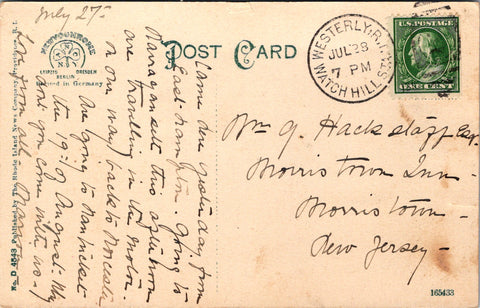 July 27-
NEWVOCHROME
LEIPZIG DRESDEN
BERLIN
Printed in Germany
POST CARD
WESTERLY, R.I.
JUL 28
7 PM
WATCH HILL
U.S. POSTAGE
ONE CENT
Came here yesterday from
East Hampton. Going to
Narragansett this afternoon
are travelling in the motor
on our way back to Worcester
Are going to Nantucket
the 9th of August. Why
don't you come with us-!
Love from
Wm G. Hackstaff Esq.
Morristown Inn-
Morristown-
New Jersey-
D 4648 Published by The Rhode Island News Company
165433